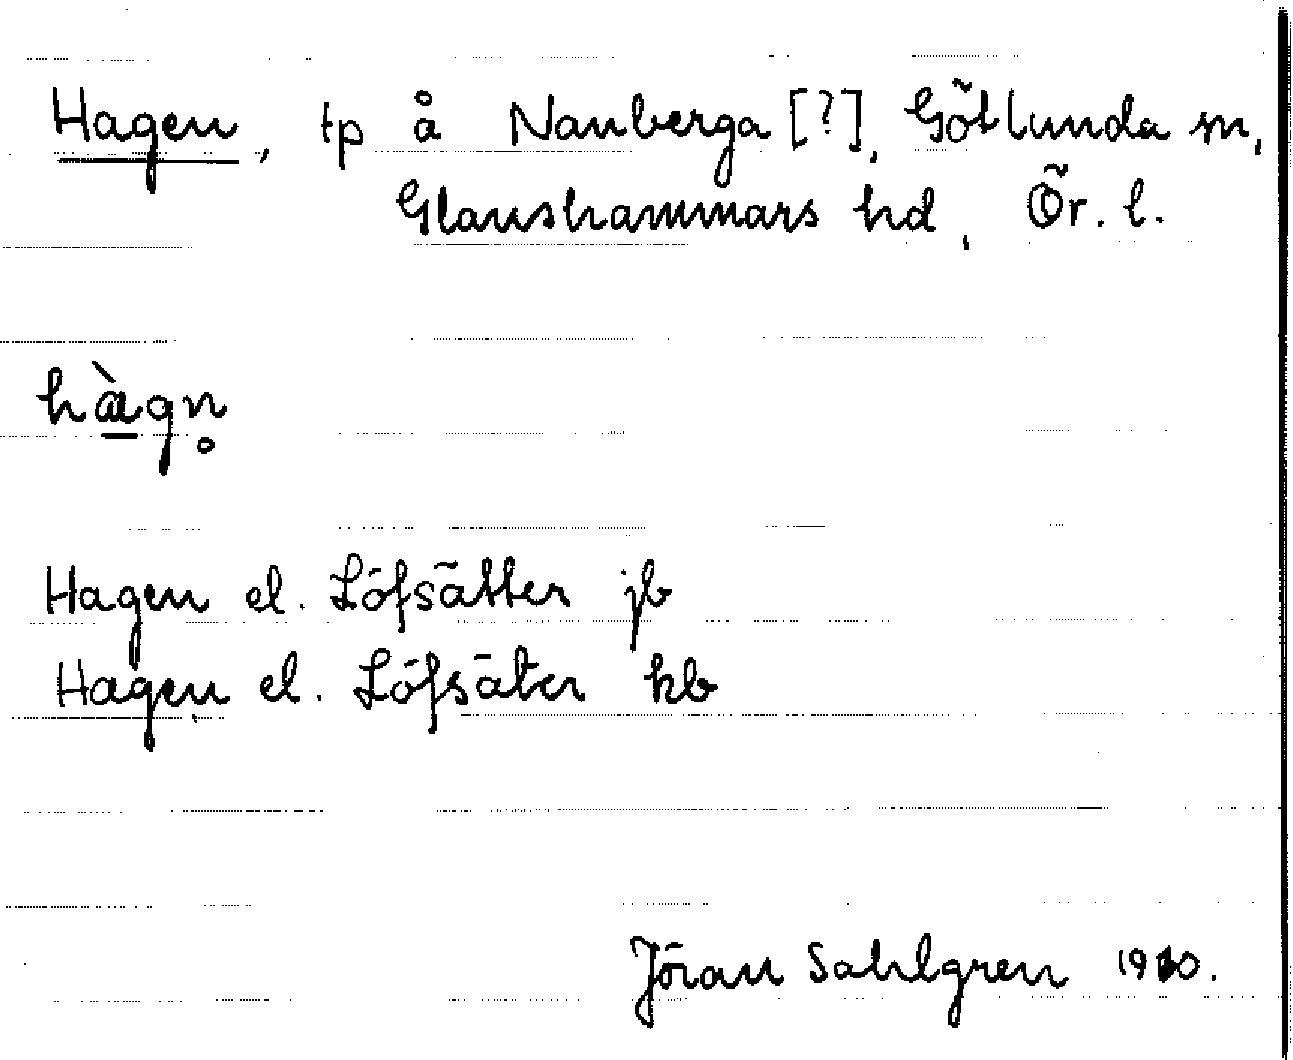 Hagen, tp å Nanberga [?], Götlunda sn,
Glanshammars hd, Ör. l.
hàgn̥
Hagen el. Löfsätter jb
Hagen el. Löfsäter kb
Jöran Sahlgren 1910.